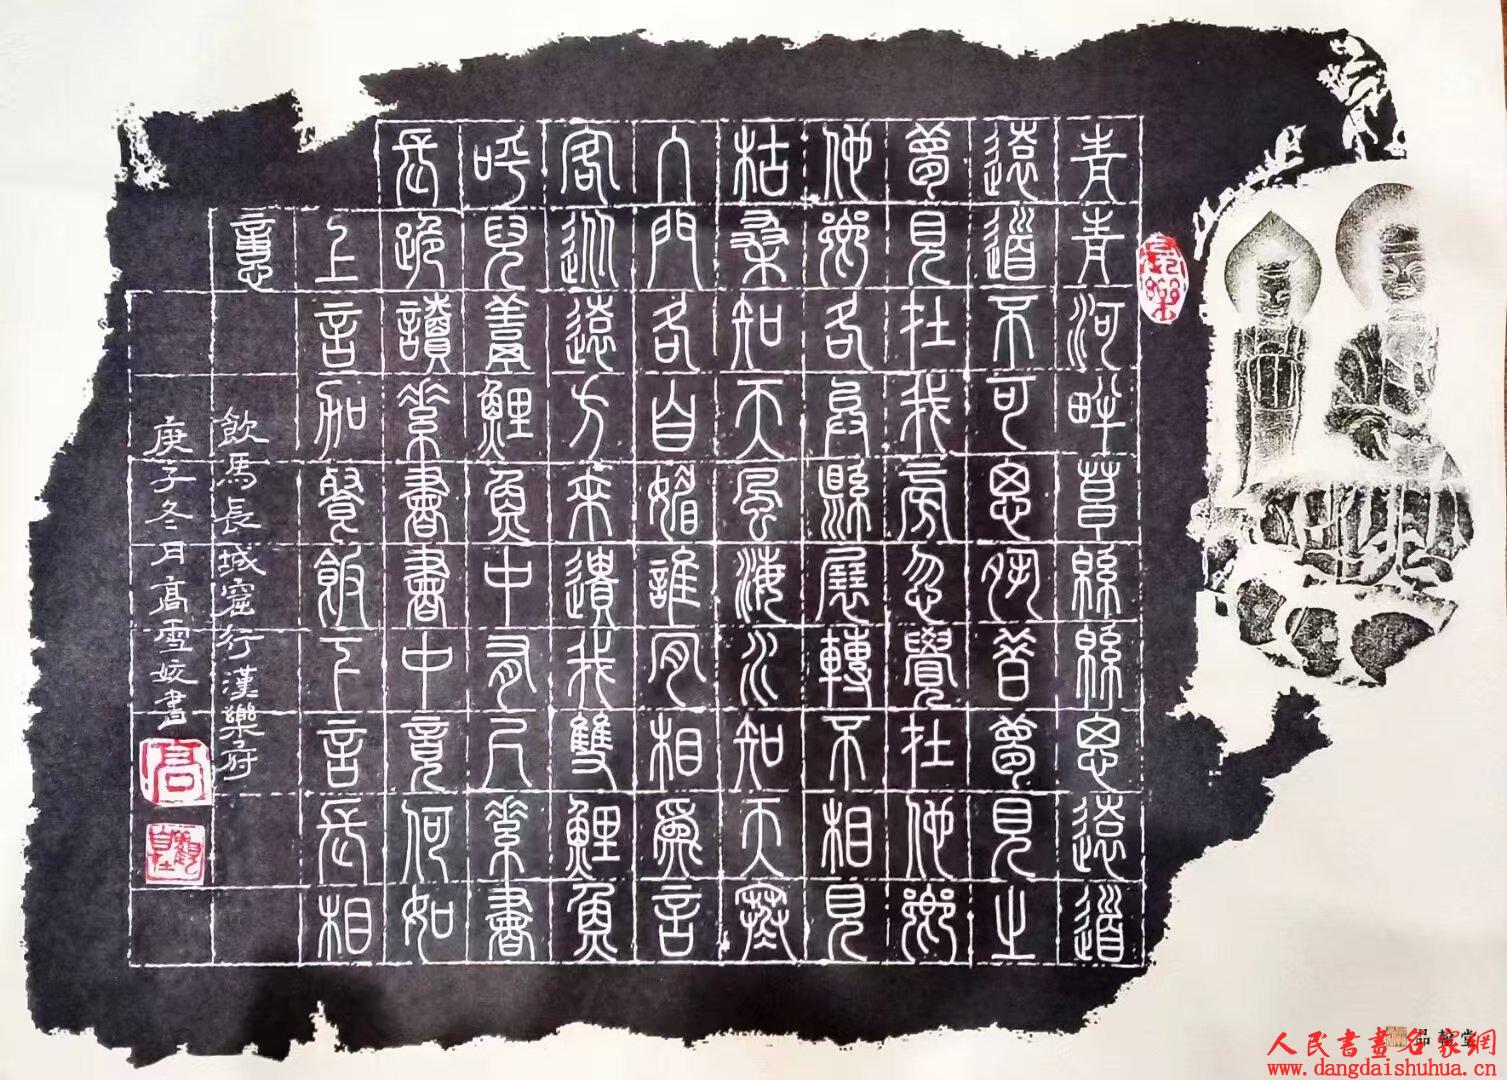 青青河畔草緜緜思遠道
遠道不可思夙昔夢見之
夢見在我旁忽覺在他鄉
他鄉各異縣展轉不相見
枯桑知天風海水知天寒
入門各自媚誰肯相為言
客從遠方來遺我雙鯉魚
呼兒鯉魚中有尺素書
長跪讀素書書中竟何如
上言加餐飯下言長相
意
飲馬長城窟行漢樂府
庚子冬月高雪姣書
高
品乾堂
人民書畫名家網
www.dangdaishuhua.cn